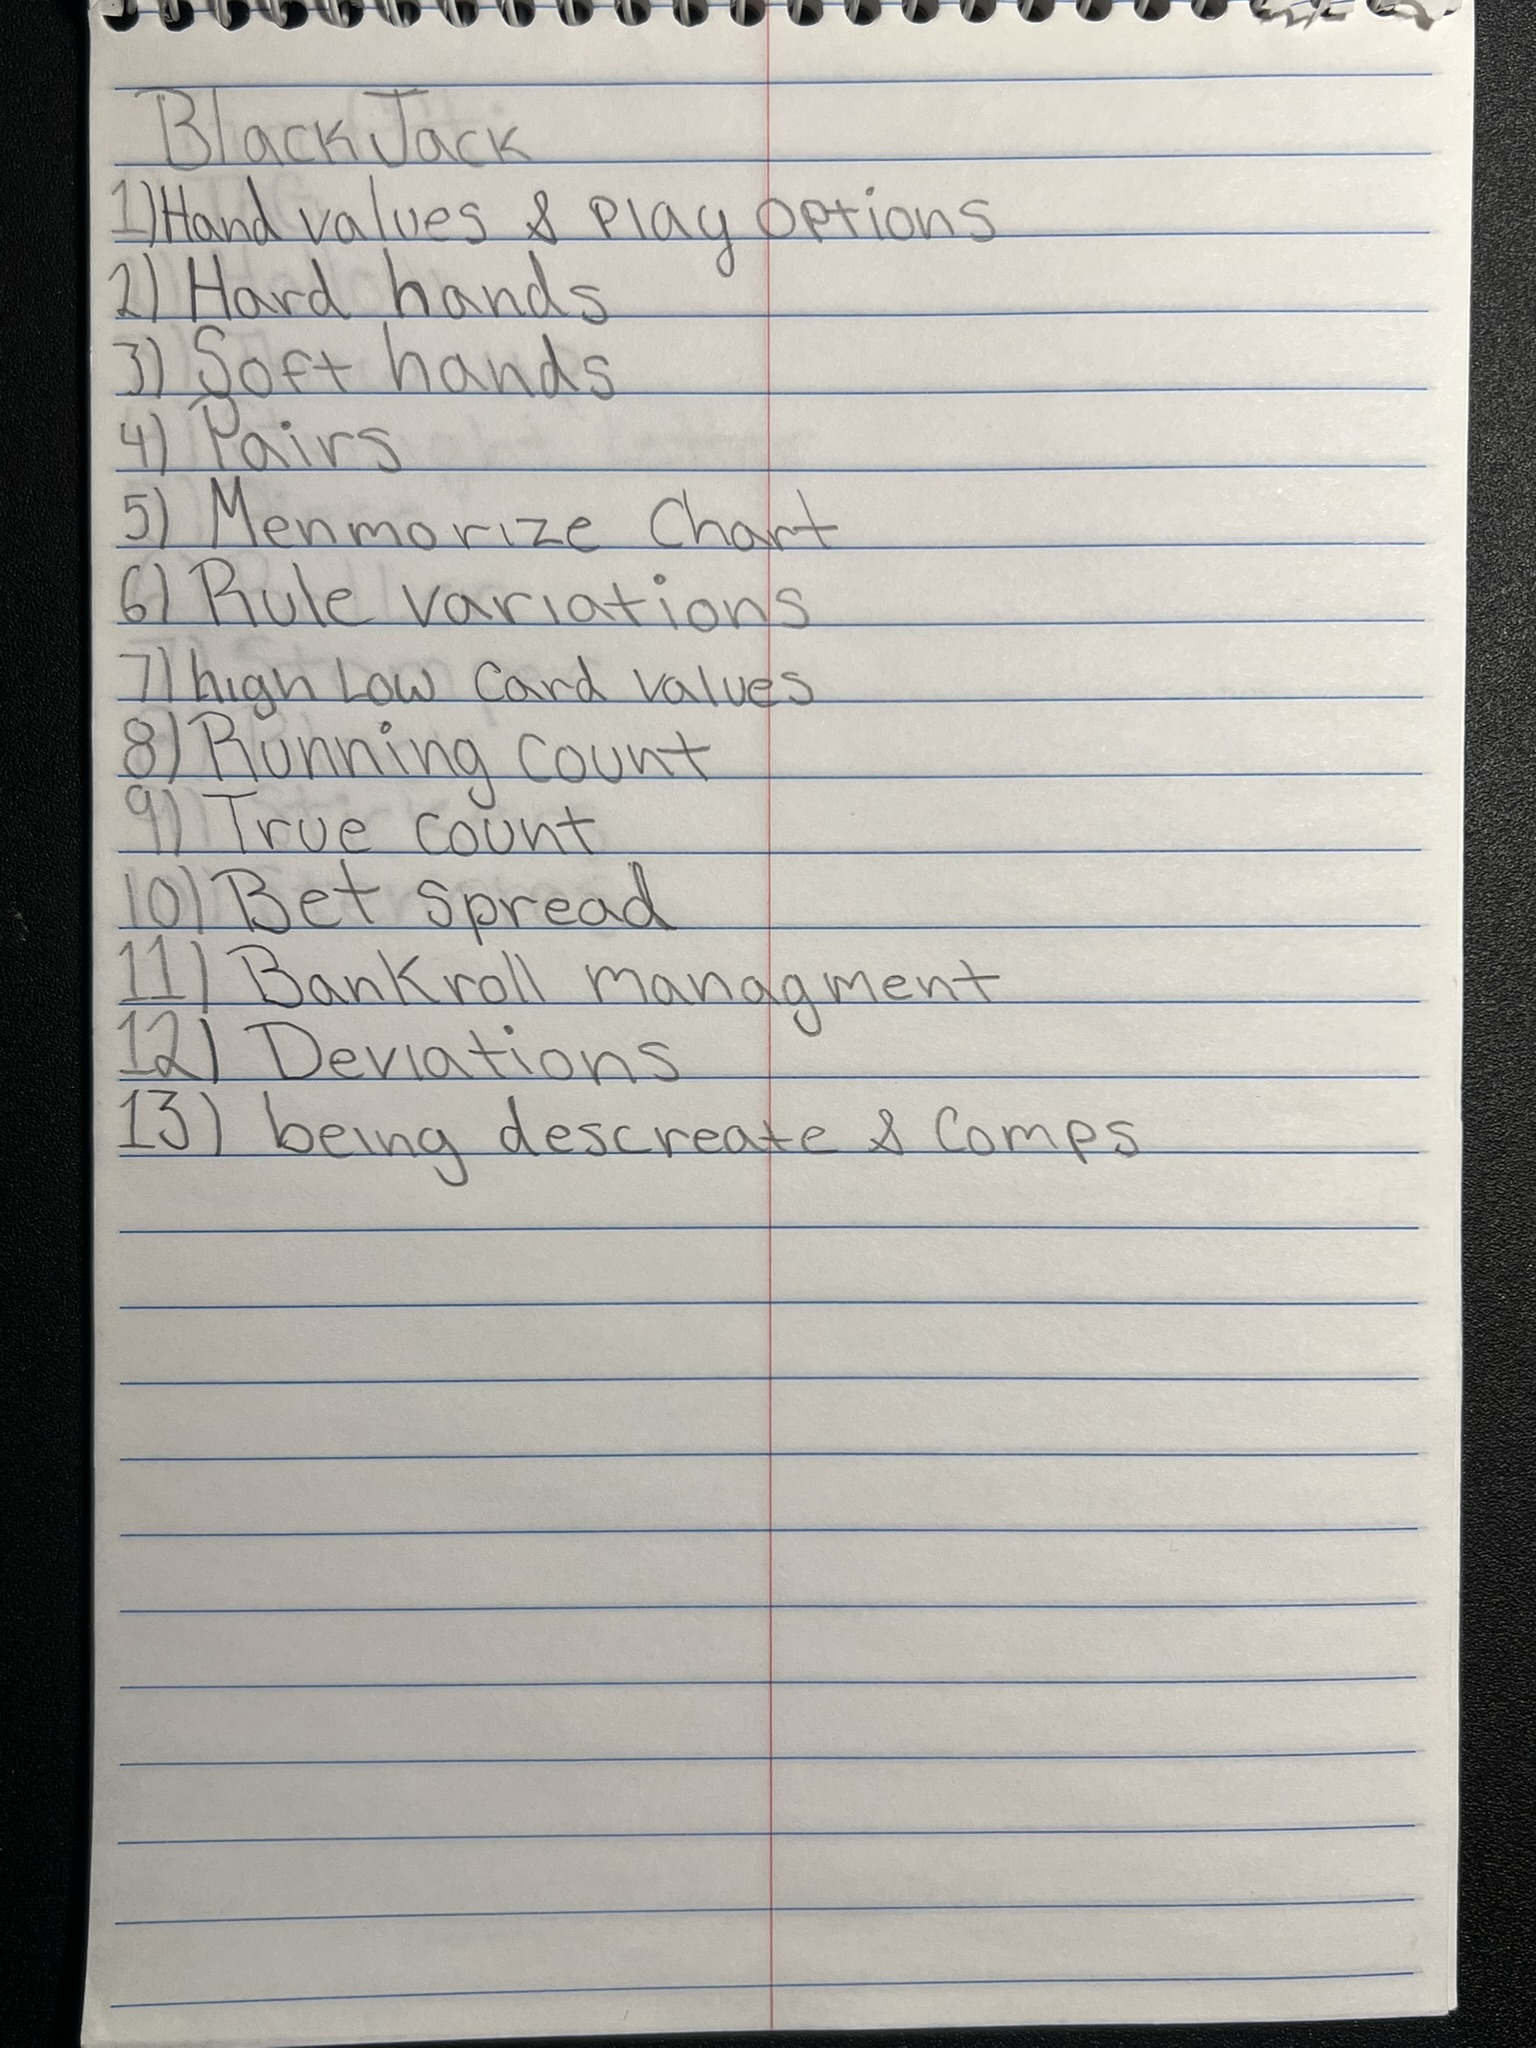 BlackJack
1) Hand values & Play options
2) Hard hands
3) Soft hands
4) Pairs
5) Menmorize Chart
6) Rule variations
7) high Low Card values
8) Running count
9) True count
10) Bet spread
11) Bankroll managment
12) Deviations
13) being descreate & Comps